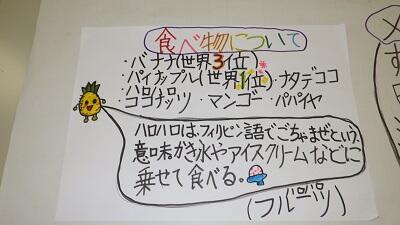 食べ物について
・バナナ(世界3位)
・パイナップル(世界1位)・ナタデココ
・ハロハロ
・ココナッツ・マンゴー・パパイヤ
ハロハロは、フィリピン語でごちゃまぜという
意味かき氷やアイスクリームなどに
乗せて食べる。
(フルーツ)